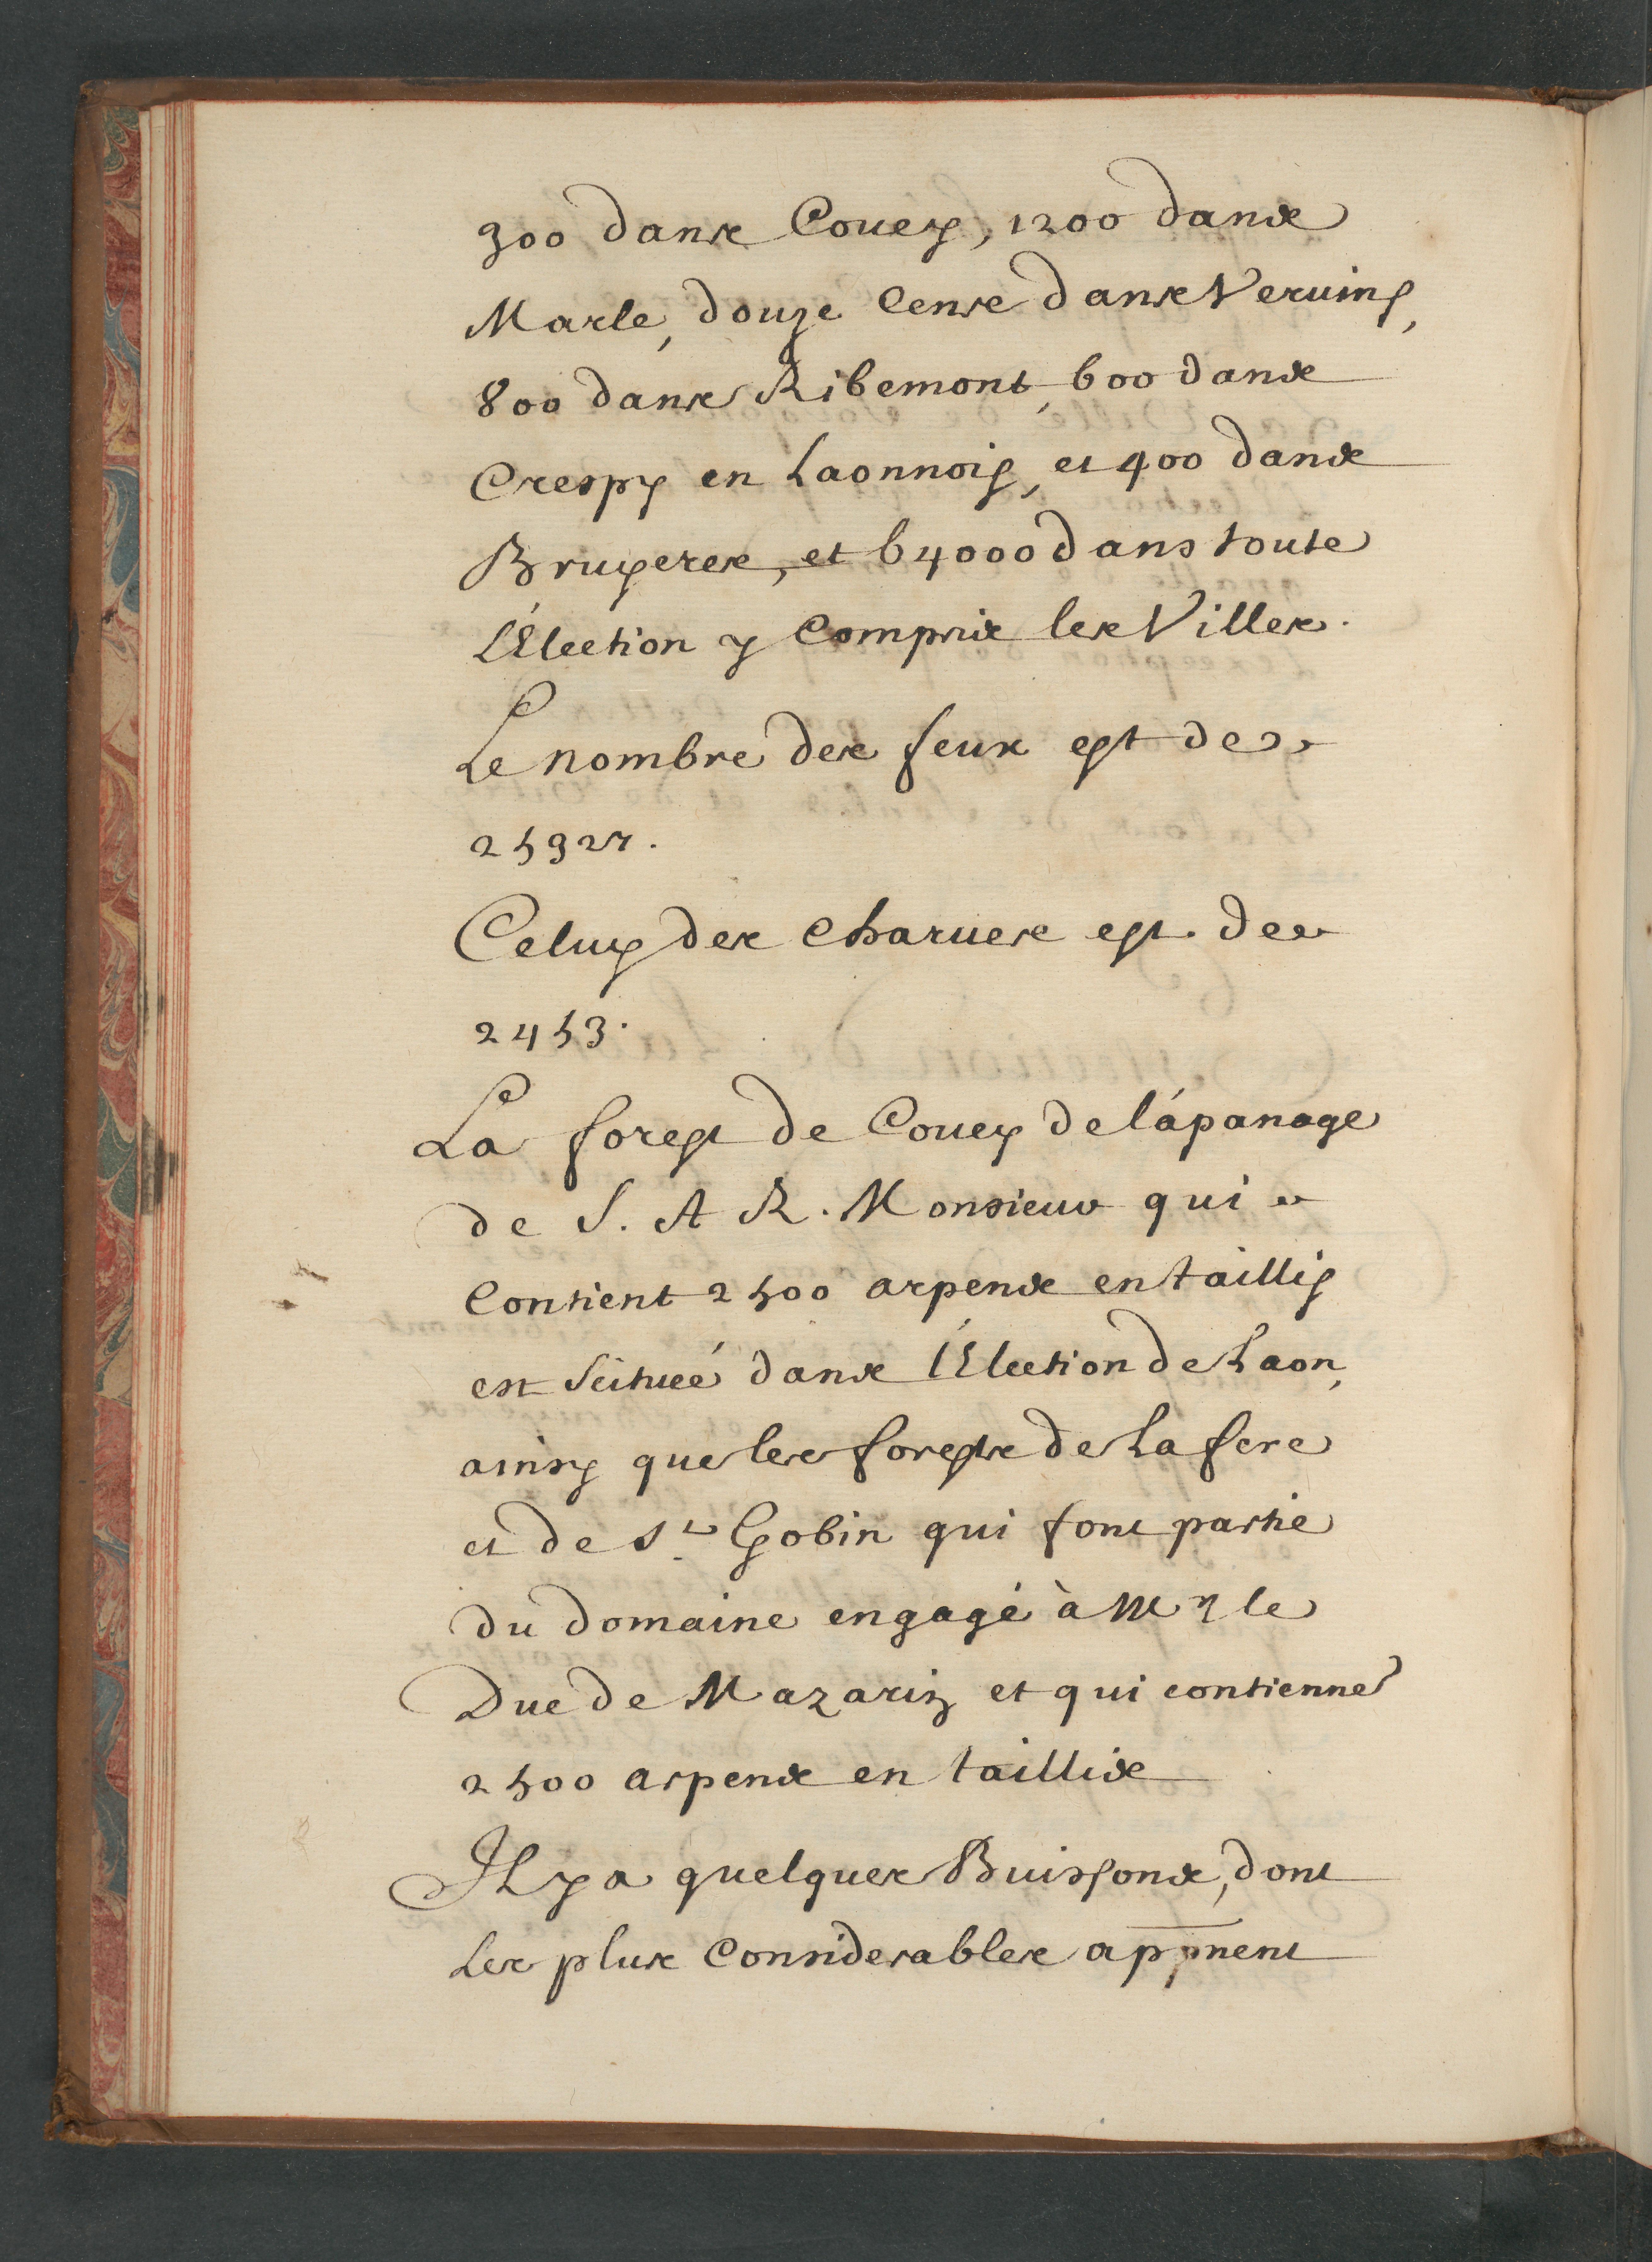 300 dans Coucy, 1200 dans
Marle, douze cens dans Vervins,
800 dans Ribemont, 600 dans
Crespy en Laonnois, et 400 dans
Bruyeres, et 64000 dans toute
L'Élection y compris les Villes.
Le nombre des feux est de
25927.
Celuy des charues est de
2453.
La forest de Coucy de l'ápanage
de S. A R. Monsieur qui
contient 2500 arpens en taillis
est scituée dans l'Élection de Laon,
ainsy que les forests de La fere
et de St Gobin qui font partie
du domaine engagé à Mr le
Duc de Mazarin et qui contienne
2500 arpens en taillis
Il y a quelques Buissons, dont
Les plus considerables appnent